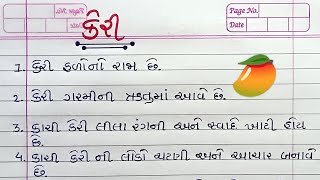 Page No.
Date
કેરી
1. કેરી ફળોનો રાજા છે.
2. કેરી ગરમીની ઋતુમાં આવે છે.
3. કાચી કેરી લીલા રંગની અને સ્વાદે ખાટી હોય
છે.
4. કાચી કેરી ની લોકો ચટણી અને આચાર બનાવે
છે.